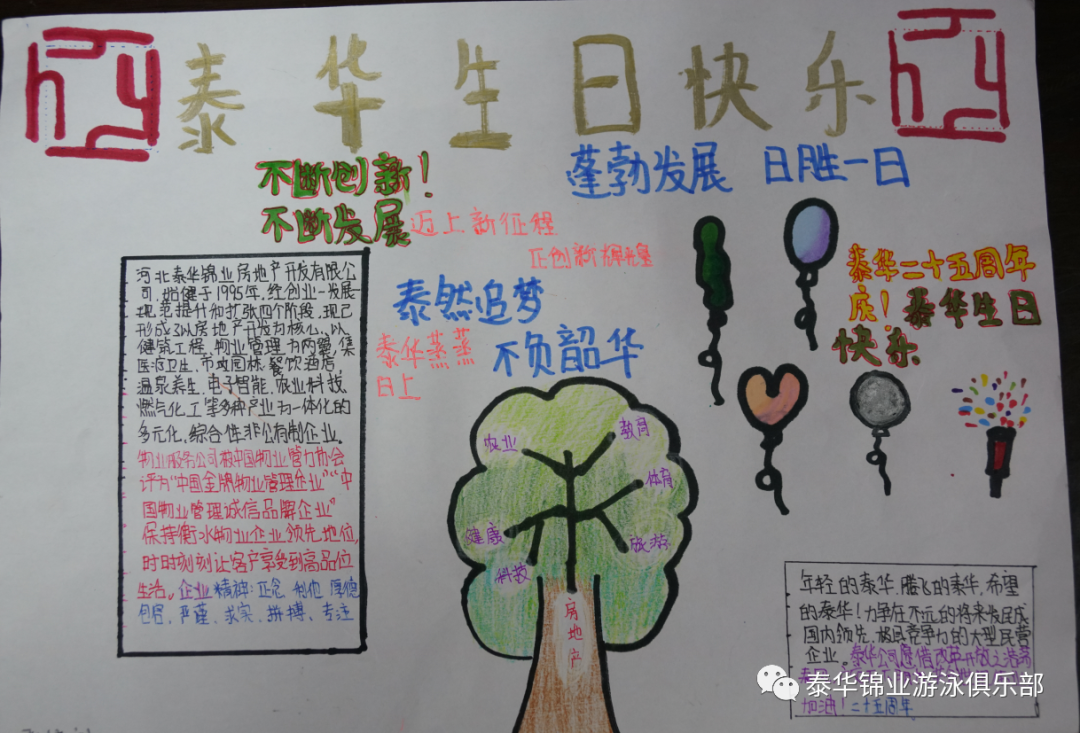 泰华生日快乐
不断创新！
不断发展
迈上新征程
正创新辉煌
蓬勃发展 日胜一日
泰然追梦
不负韶华
泰华蒸蒸
日上
泰华二十五周年
庆！泰华生日
快乐
河北泰华锦业房地产开发有限公
司，始健于1995年，经创业-发展-
规范提升和扩张四个阶段，现已
形成了以房地产开发为核心，以
健筑工程，物业管理为两翼，集
医治卫生，市政园林，餐饮酒店
温泉养生，电子智能，农业科技
燃气化工等多种产业为一体化的
多元化，综合性非公有制企业。
物业服务公司被中国物业管力协会
评为“中国金牌物业管理企业”“中
国物业管理诚信品牌企业”
保持衡水物业企业领先地位，
时时刻刻让客户享受到高品位
生活。企业精神：正念 利他 厚德
包容，严谨、求实、拼搏、专注
农业
教育
体育
健康
旅游
科技
房地产
年轻的泰华，腾飞的泰华，希望
的泰华！力争在不远的将来发展成
国内领先，极具竞争力的大型民营
企业。泰华公司是借改革开放之
加油！二十五周年
泰华锦业游泳俱乐部